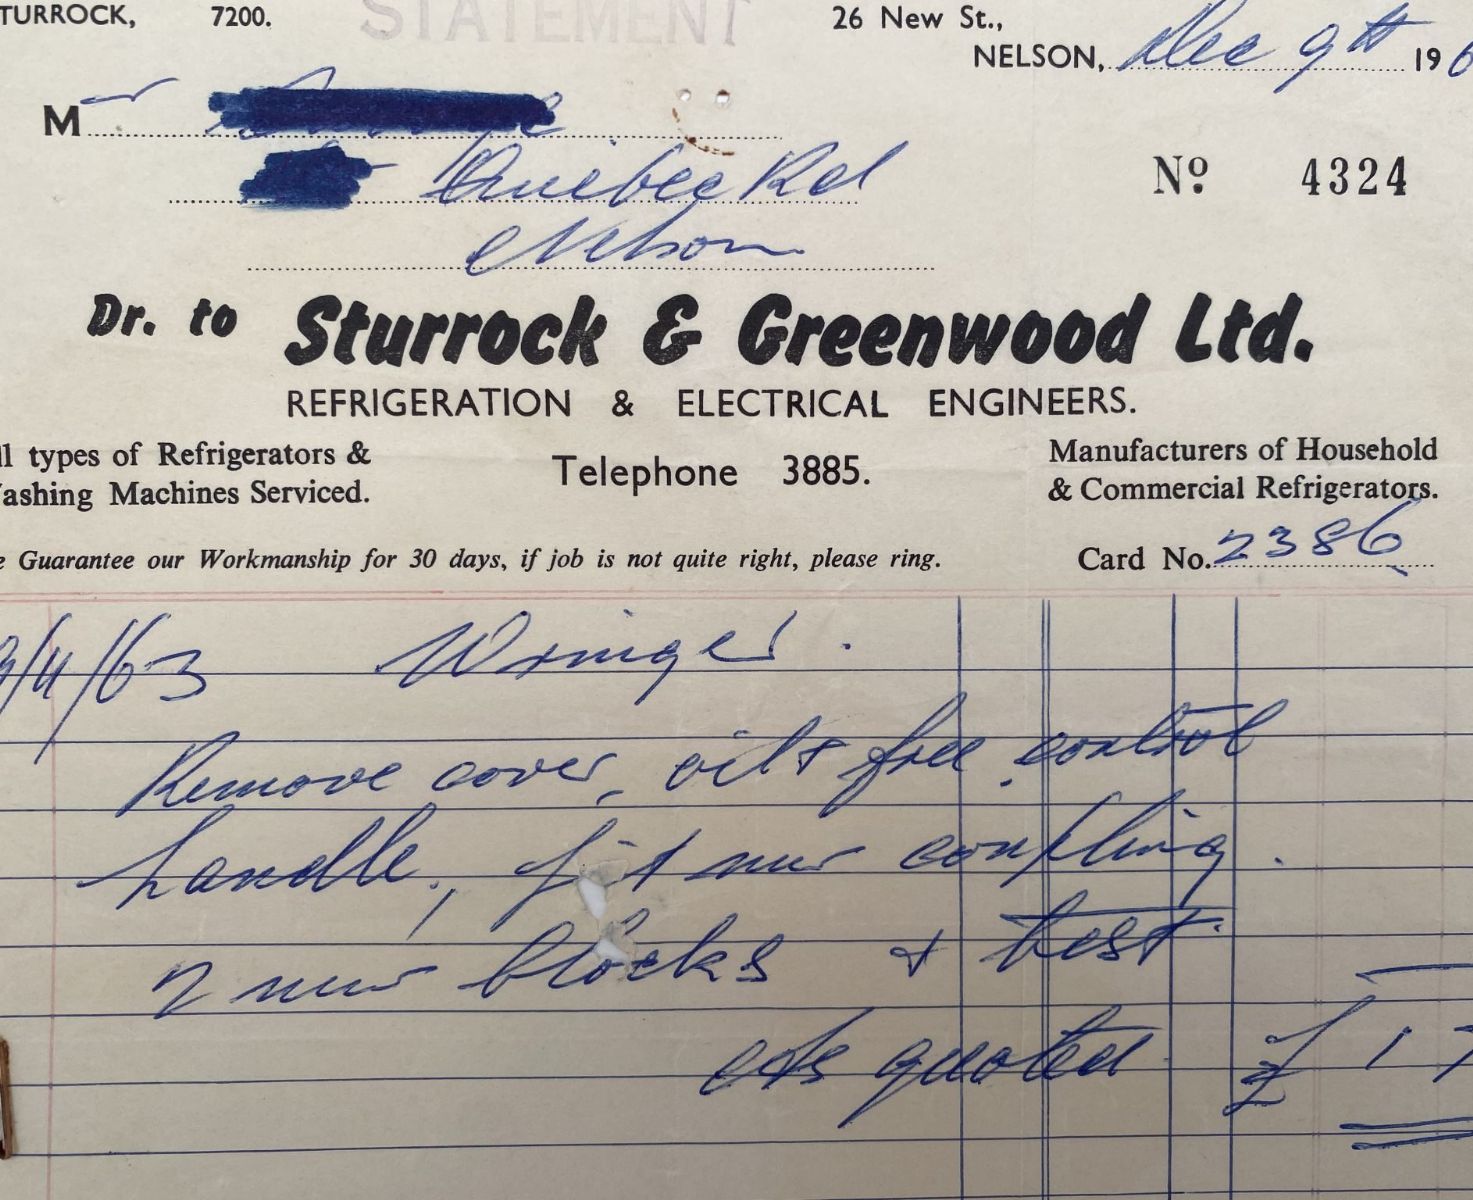 TURROCK, 7200. STATEMENT 26 New St.,
NELSON, Dec 9th 196
M
Quebec Rd
Nelson
Nº 4324
Dr. to Sturrock & Greenwood Ltd.
REFRIGERATION & ELECTRICAL ENGINEERS.
ll types of Refrigerators &
ashing Machines Serviced.
Telephone 3885.
Manufacturers of Household
& Commercial Refrigerators.
e Guarantee our Workmanship for 30 days, if job is not quite right, please ring.
Card No. 2386
9/4/63 Wringer.
Remove cover, oil & free control
handle, fit new coupling.
2 new blocks & test.
As quoted £ 17